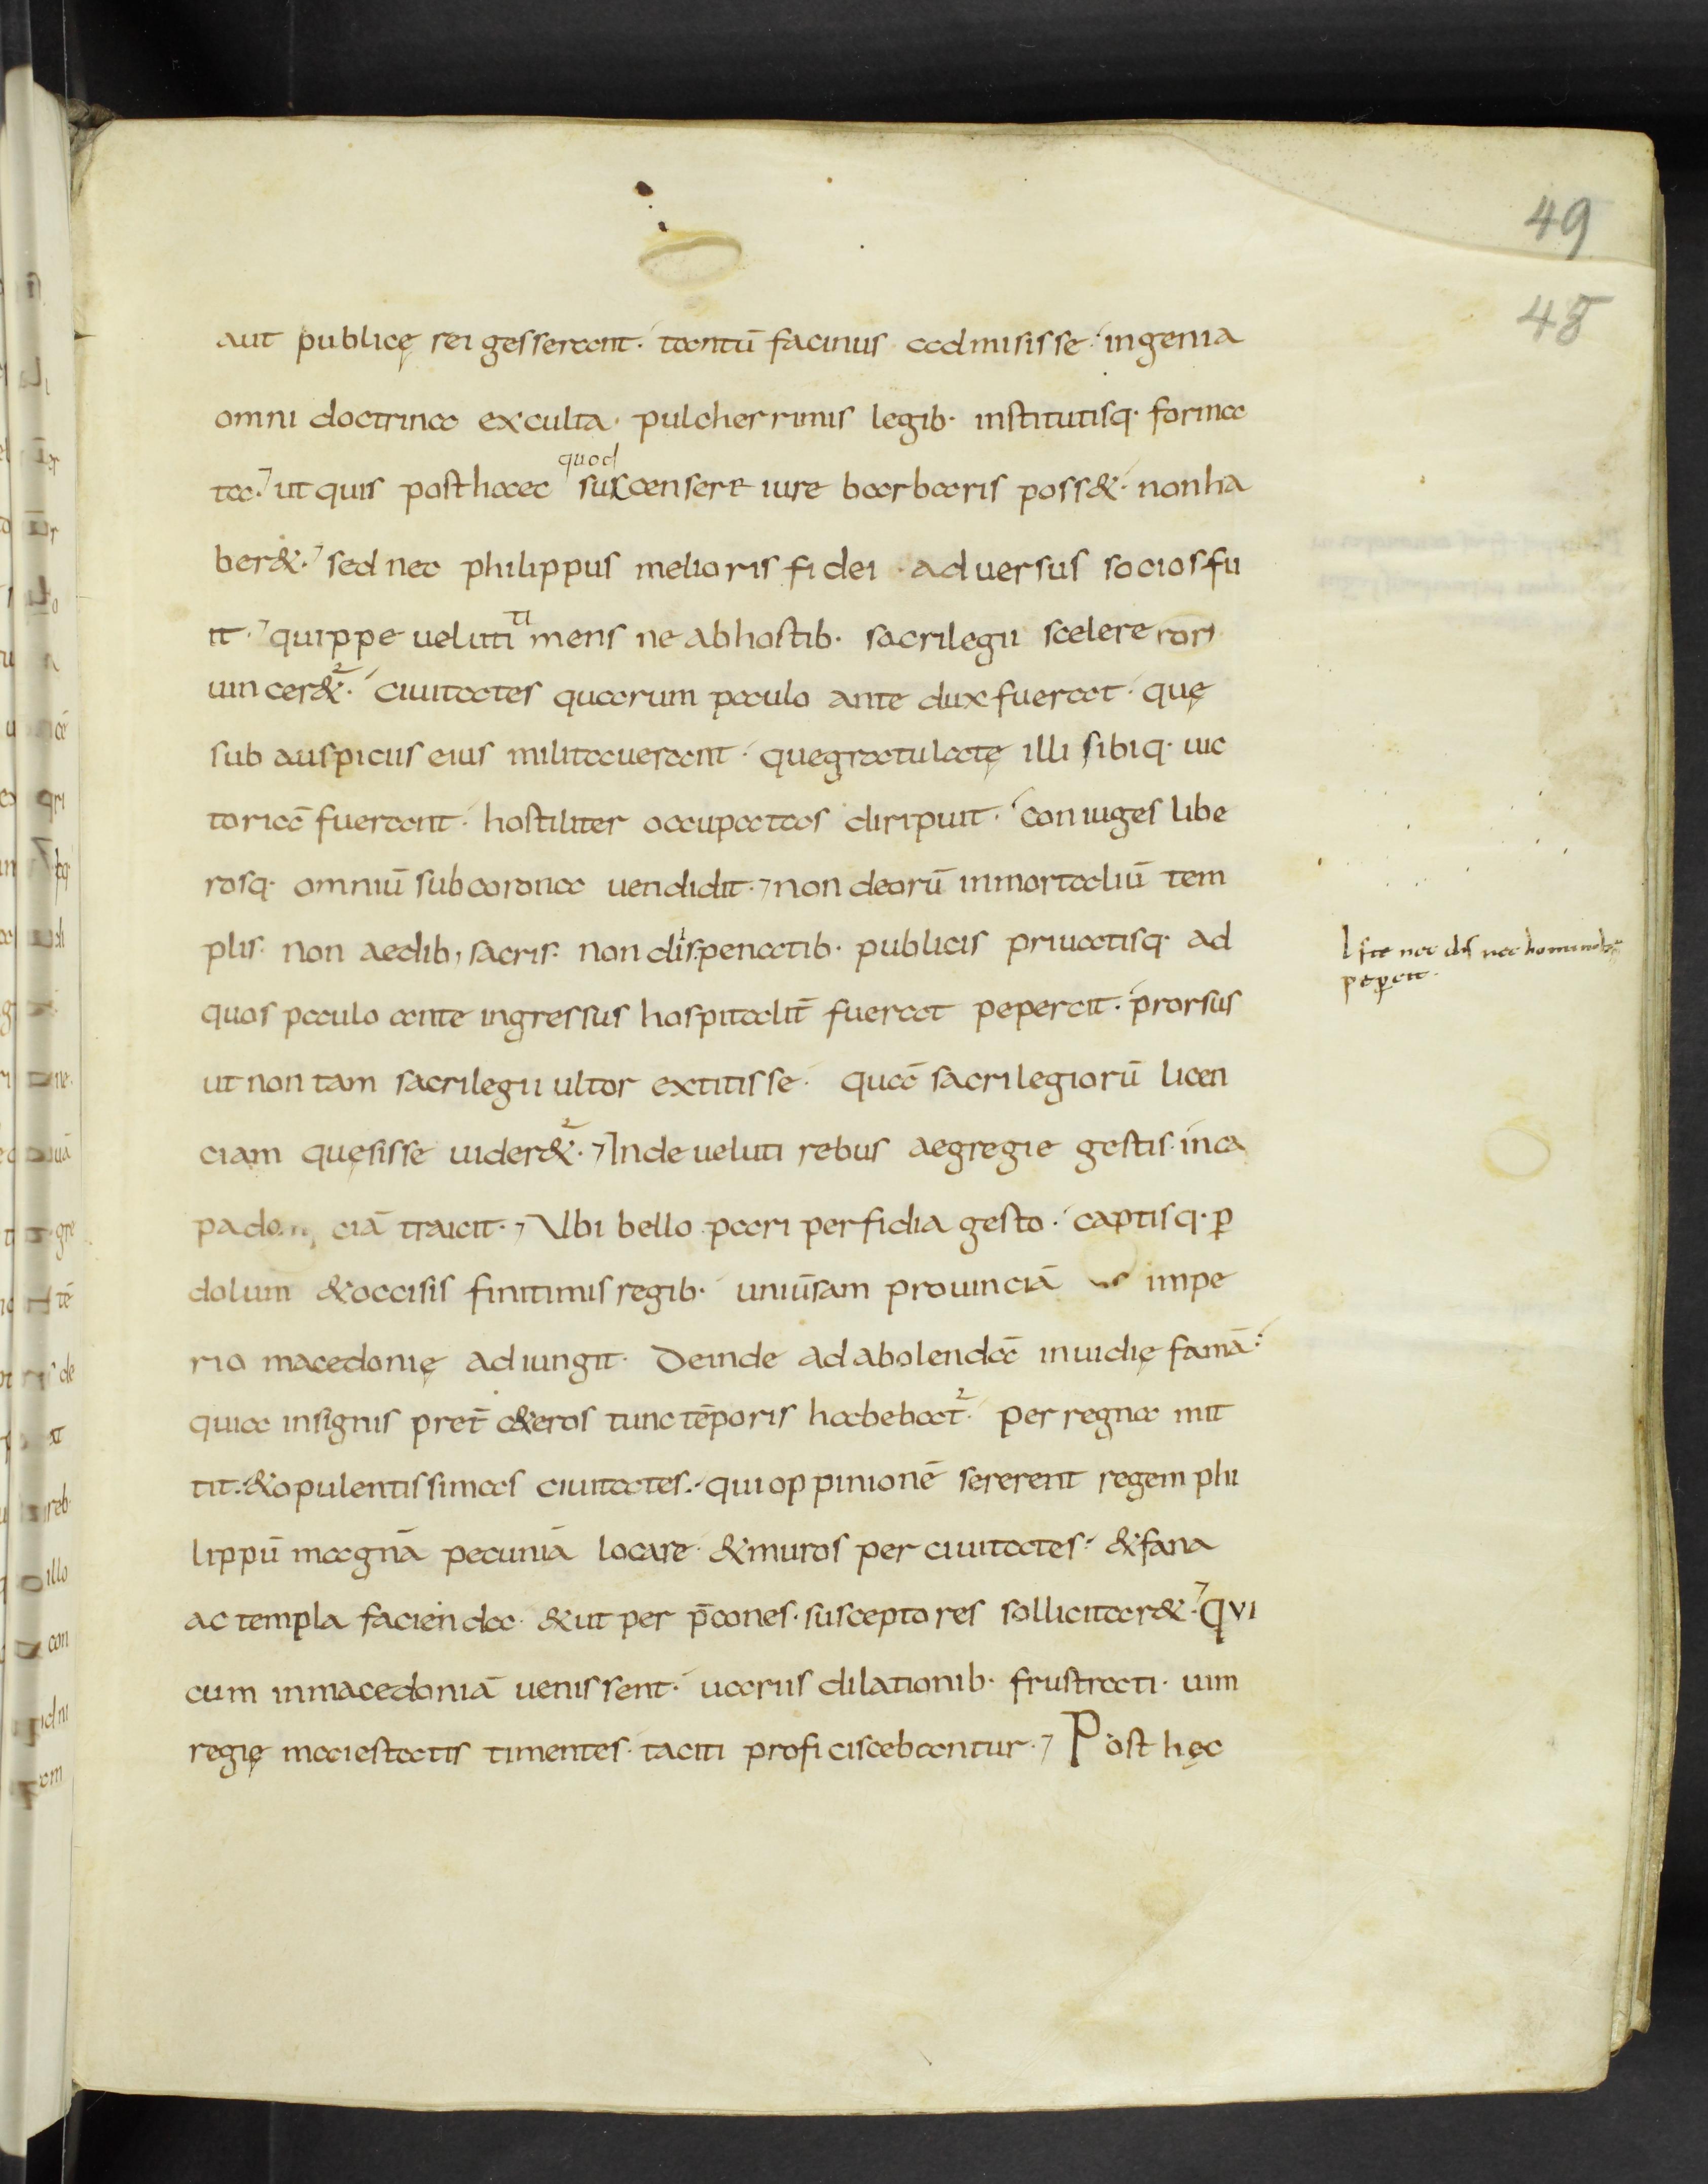 49
48
aut publicę rei gesserant· tantū facinus admisisse· ingenia
omni doctrina exculta· pulcherrimis legib· institutisq· forma
ta· ut quis posthaec suscensere iure barbaris poss&· nonha
quod
ber&· sed nec philippus melioris fidei · aduersus sociosfu
it· quippe ueluti mens ne abhostib· sacrilegii scelere
ti
uincer&· ciuitates quarum paulo ante dux fuerat· quę
sub auspiciis eius militauerant· quegratulatę illi sibiq· uic
toriā fuerant· hostiliter occupatas diripuit· coniuges libe
rosq· omniū subcorona uendidit· non deorū inmortaliū tem
plis· non aedib; sacris· non dispenatib· publicis priuatisq· ad
i
quos paulo ante ingressus hospitalit̄ fuerat pepercit· prorsus
Iste nec diis nec hominib;
peꝑcit·
ut non tam sacrilegii ultor extitisse· quā sacrilegiorū licen
ciam quęsisse uider&· Inde ueluti rebus aegregie gestis· inca
ciā traicit· Vbi bello pari perfidia gesto· captisq· ꝑ
dolum &occisis finitimis regib· uniūsam prouinciā impe
rio macedonię adiungit· Deinde adabolendā inuidię famā·
quia insignis pret̄ c&eros tunc tēporis habebat̄· per regna mit
tit· &opulentissimas ciuitates· qui oppinionē sererent regem phi
lippū magnā pecuniā locare· &muros per ciuitates· &fana
ac templa facienda· &ut per p̄cones· susceptores sollicitar&· QVI
cum inmacedoniā uenissent· uariis dilationib· frustrati· uim
regię maiestatis timentes· taciti proficiscebantur· Post hęc